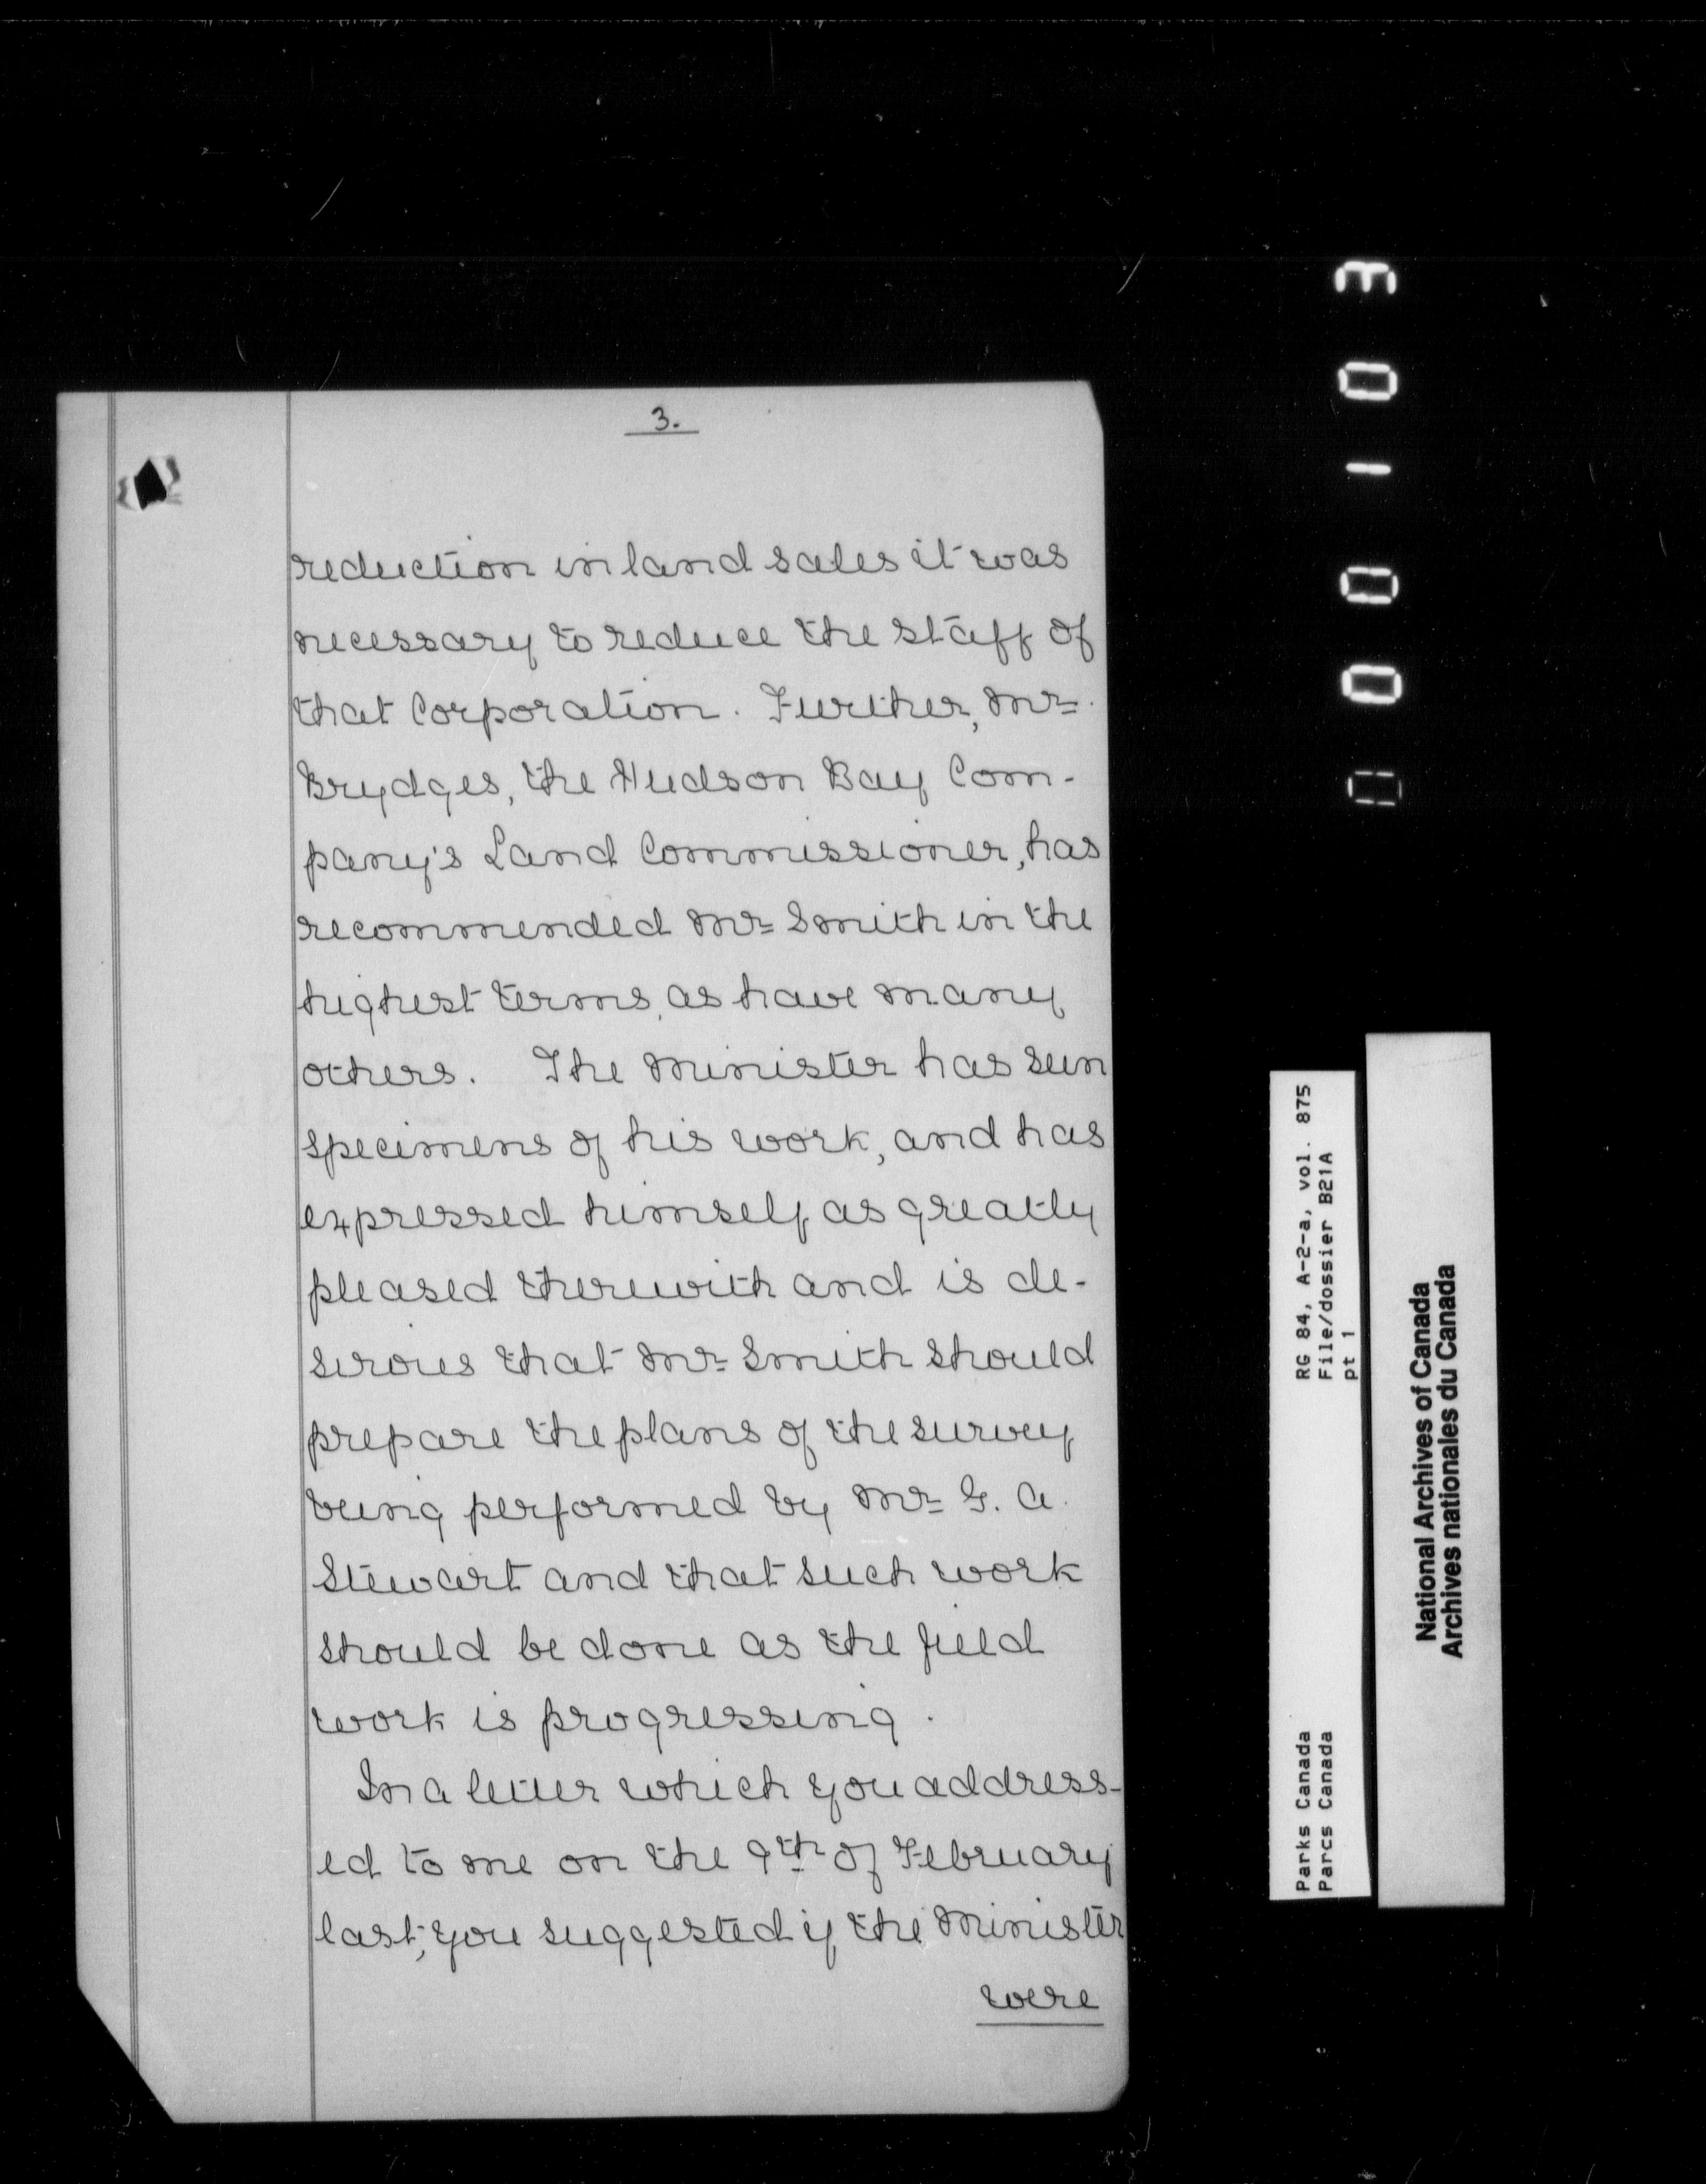 3.
reduction in land sales it was
necessary to reduce the staff of
that Corporation. Further, Mr.
Brydges, the Hudson Bay Com-
pany's Land Commissioner, has
recommended Mr Smith in the
highest terms, as have many
others. The Minister has seen
specimens of his work, and has
expressed himself as greatly
pleased therewith and is de-
sirous that Mr Smith should
prepare the plans of the survey
being performed by Mr G. A.
Stewart and that such work
should be done as the field
work is progressing.
In a letter which you address-
ed to me on the 9th of February
last, you suggested if the Minister
were
000103
RG 84, A-2-a, vol. 875
File/dossier B21A
pt 1
Parks Canada
Parcs Canada
National Archives of Canada
Archives nationales du Canada